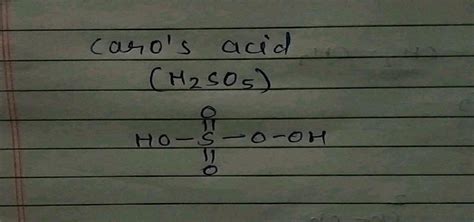 Caro's acid
(H2SO5)
O
HO-S-O-OH
O